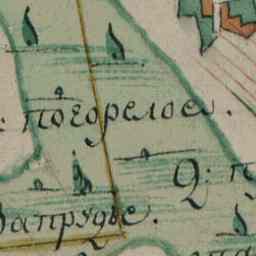 : погорелое.
Q: п
Запрудье.